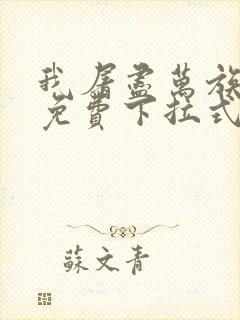 我屠盡萬族
免費下拉式
蘇文青